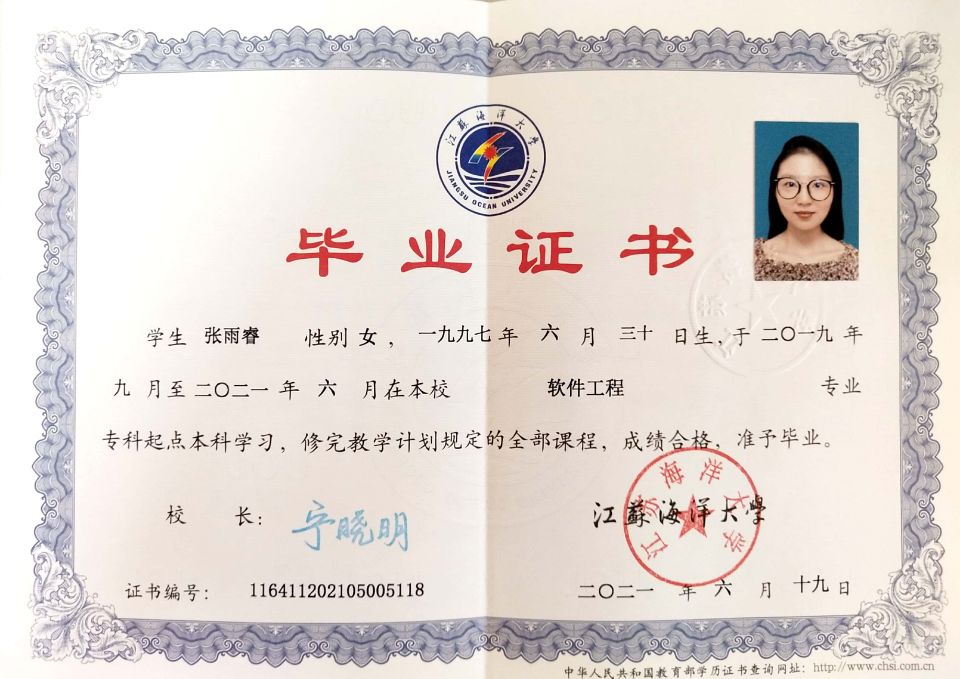 江蘇海洋大學
JIANGSU OCEAN UNIVERSITY
毕业证书
学生 张雨睿 性别 女，一九九七 年 六 月 三十 日生，于 二〇一九 年
九 月至 二〇二一 年 六 月在本校 软件工程 专业
专科起点本科学习，修完教学计划规定的全部课程，成绩合格，准予毕业。
校 长： 宁晓明
江蘇海洋大學
江苏海洋大学
证书编号： 116411202105005118
二〇二一 年 六 月 十九 日
中华人民共和国教育部学历证书查询网址：http://www.chsi.com.cn